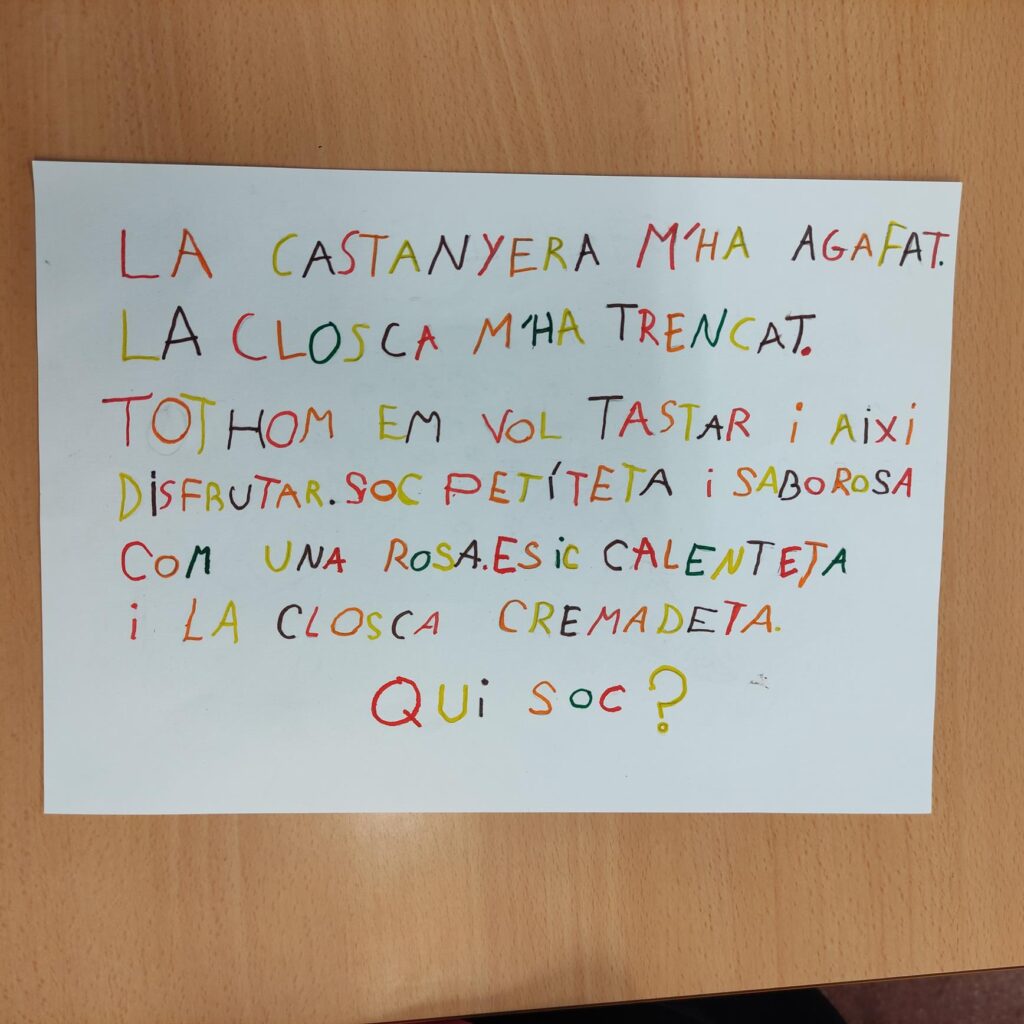 LA CASTANYERA M'HA AGAFAT.
LA CLOSCA M'HA TRENCAT.
TOTHOM EM VOL TASTAR i AiXi
DiSFRUTAR. SOC PETÍTETA i SABOROSA
COM UNA ROSA. ESiC CALENTETA
i LA CLOSCA CREMADETA.
QUi SOC?